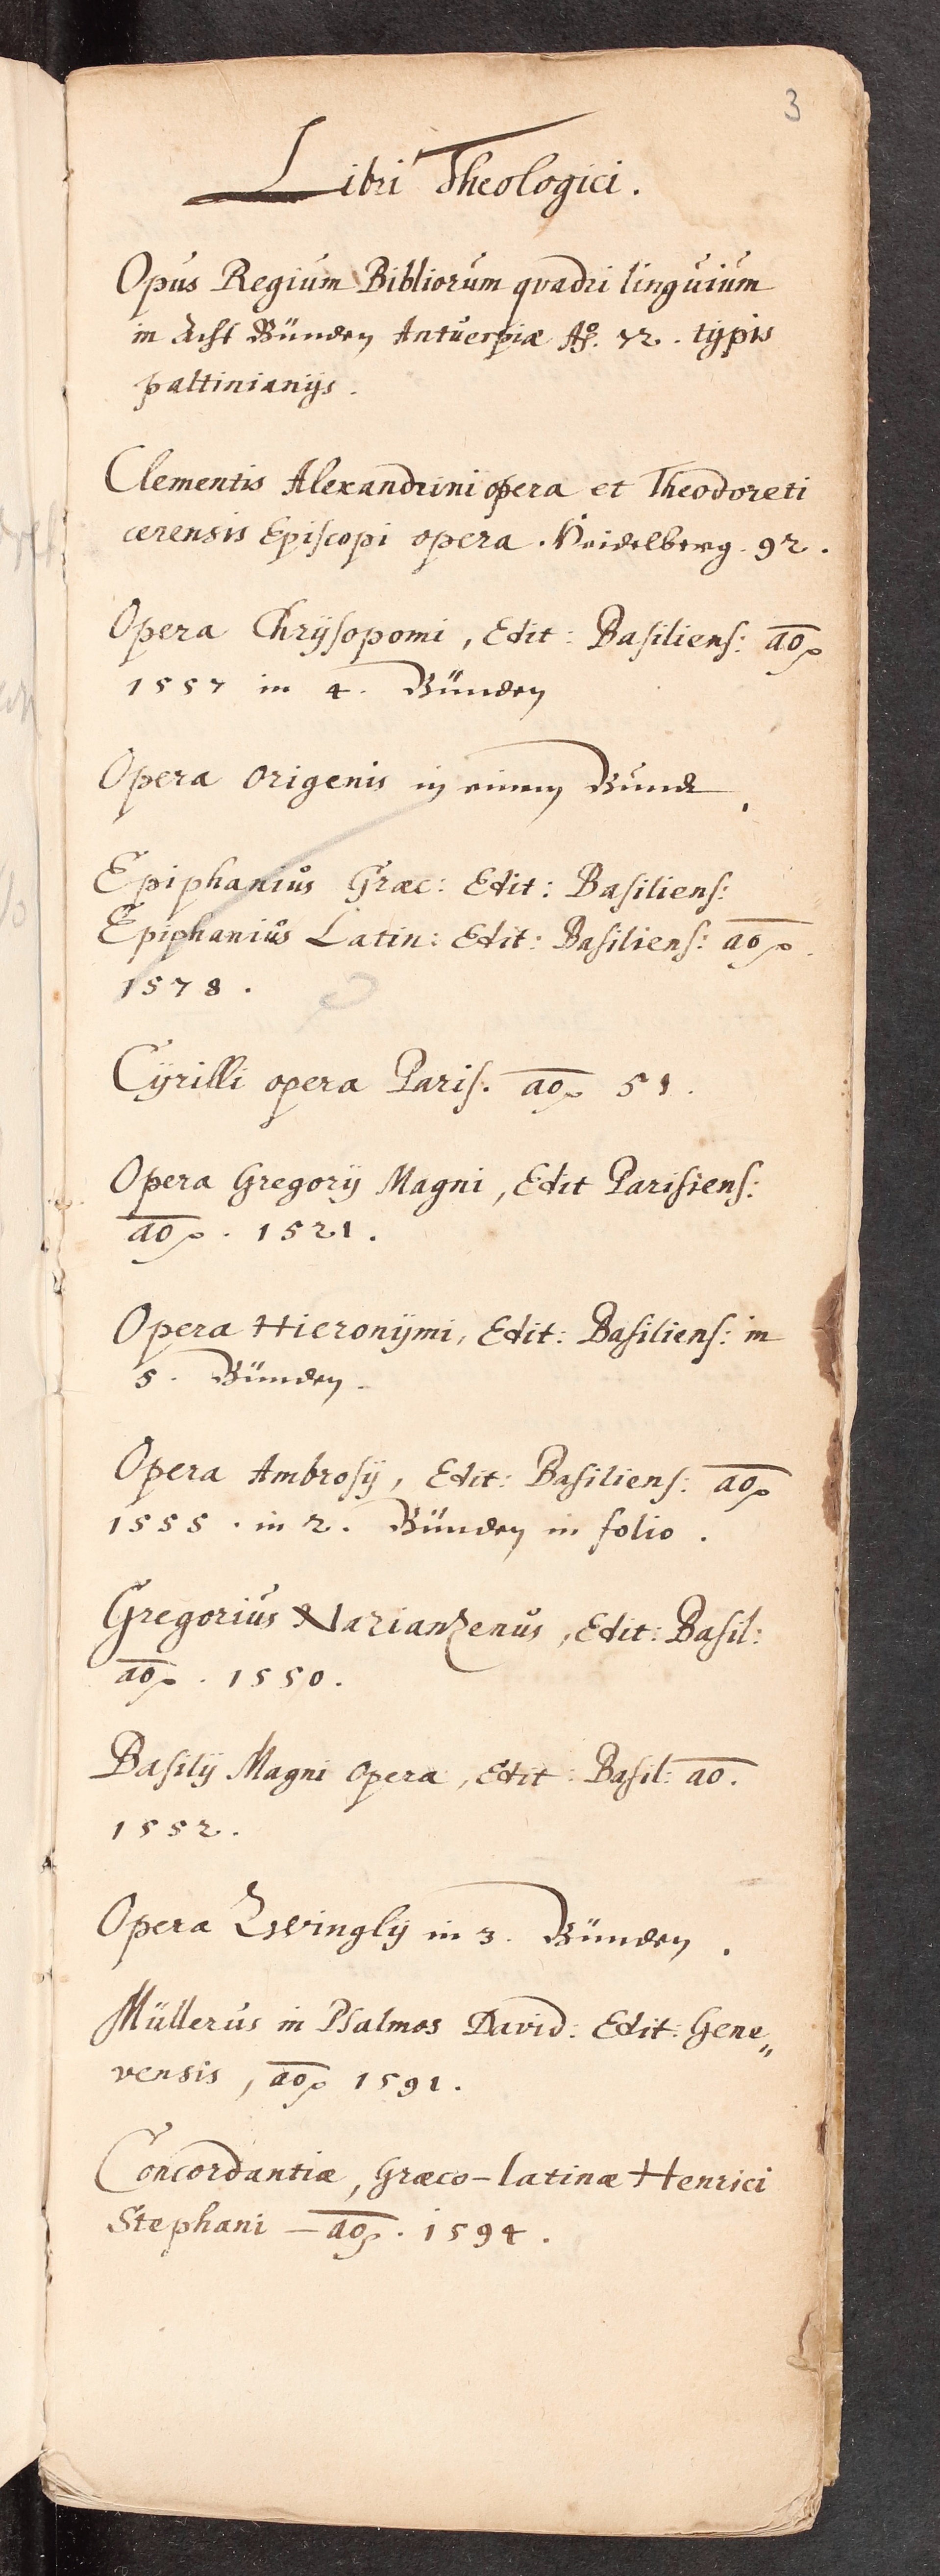 3
Libri Theologici.
Opus Regium Bibliorum qvadri linguium
in Acht Bünden Antuerpiæ Aº. 72. typis
paltinianijs.
Clementis Alexandrini opera et Theodoreti
cerensis Episcopi opera. Heidelberg. 92.
Opera Chrijsopomi, Edit: Basiliens: ao
1557 in 4. Bünden
Opera origenis in einem Bundt.
Epiphanius Græc: Edit: Basiliens:
Epiphanius Latin: Edit: Basiliens: ao.
1578.
Cyrilli opera Paris. ao 51.
Opera Gregorij Magni, Edit Parisiens:
ao. 1521.
Opera Hieronijmi, Edit: Basiliens: in
5. Bünden.
Opera Ambrosij, Edit: Basiliens: ao
1555. in 2. Bünden in folio.
Gregorius Narianzenus, Edit: Basil:
ao. 1550.
Basilij Magni opera, Edit: Basil: ao.
1552.
Opera Zwinglij in 3. Bünden.
Müllerus in Psalmos David: Edit: Gene„
vensis, ao 1591.
Concordantiæ, Græco-latinæ Henrici
Stephani – ao. 1594.